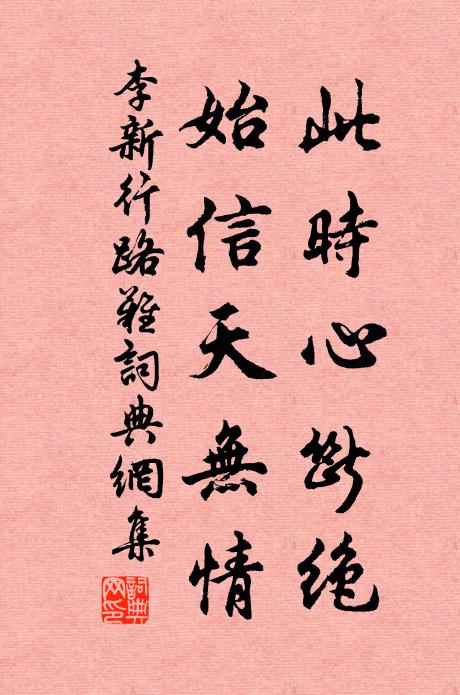 此時心斷絶
始信天無情
李新行路難詞典網集
詞典網印